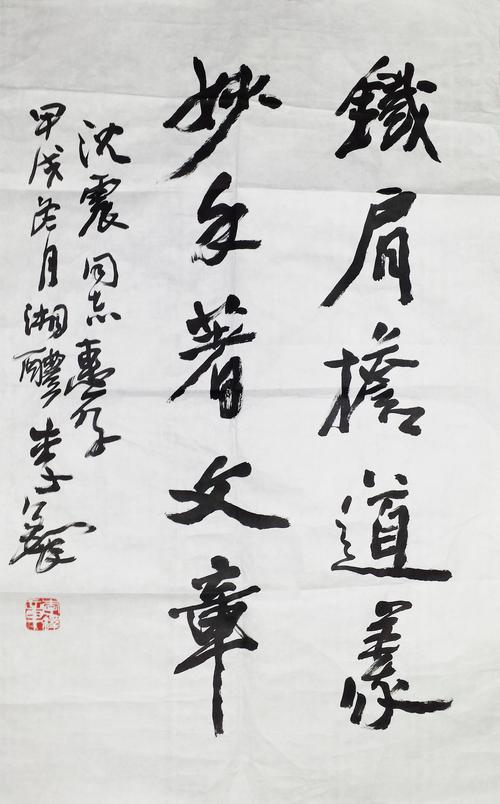 鐵肩擔道義
妙手著文章
沈震同志惠存
甲戌冬月湘醴李